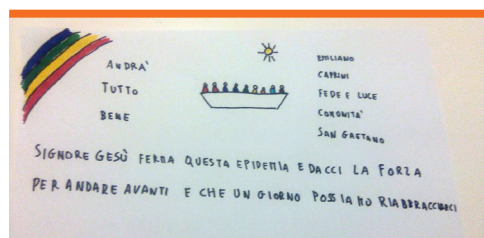 ANDRA'
TUTTO
BENE
EMILIANO
CAPRINI
FEDE E LUCE
COMUNITA'
SAN GAETANO
SIGNORE GESÙ FERMA QUESTA EPIDEMIA E DACCI LA FORZA
PER ANDARE AVANTI E CHE UN GIORNO POSSIAMO RIABBRACCIARCI